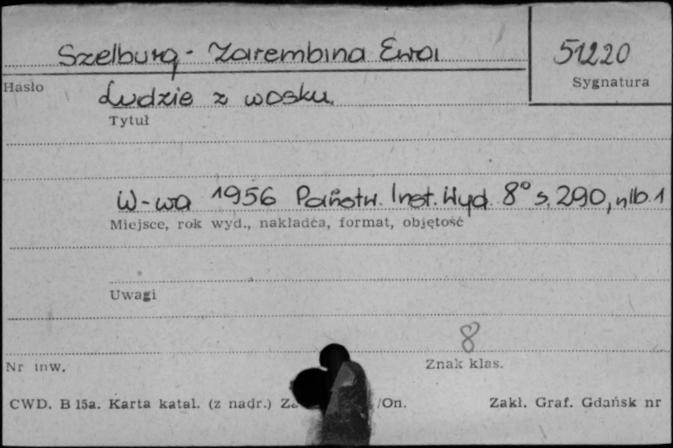 Szelburg-Zarembina Ewa
51220
Hasło
Sygnatura
Ludzie z wosku.
Tytuł
W-wa 1956 Państw. Inst. Wyd. 8° s. 290, nlb. 1
Miejsce, rok wyd., nakładca, format, objętość
Uwagi
8
Nr inw.
Znak klas.
CWD. B 15a. Karta katal. (z nadr.) /On. Zakł. Graf. Gdańsk nr